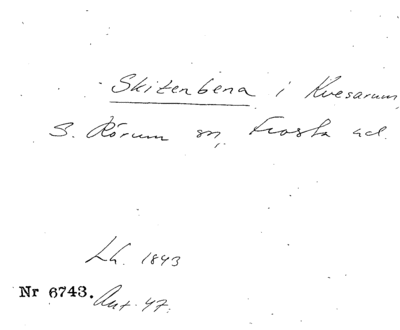 Skitenbena i Kvesarum,
S. Rörum sn, Frosta hd.
Lh. 1843
Nr 6743. Aut. 47.